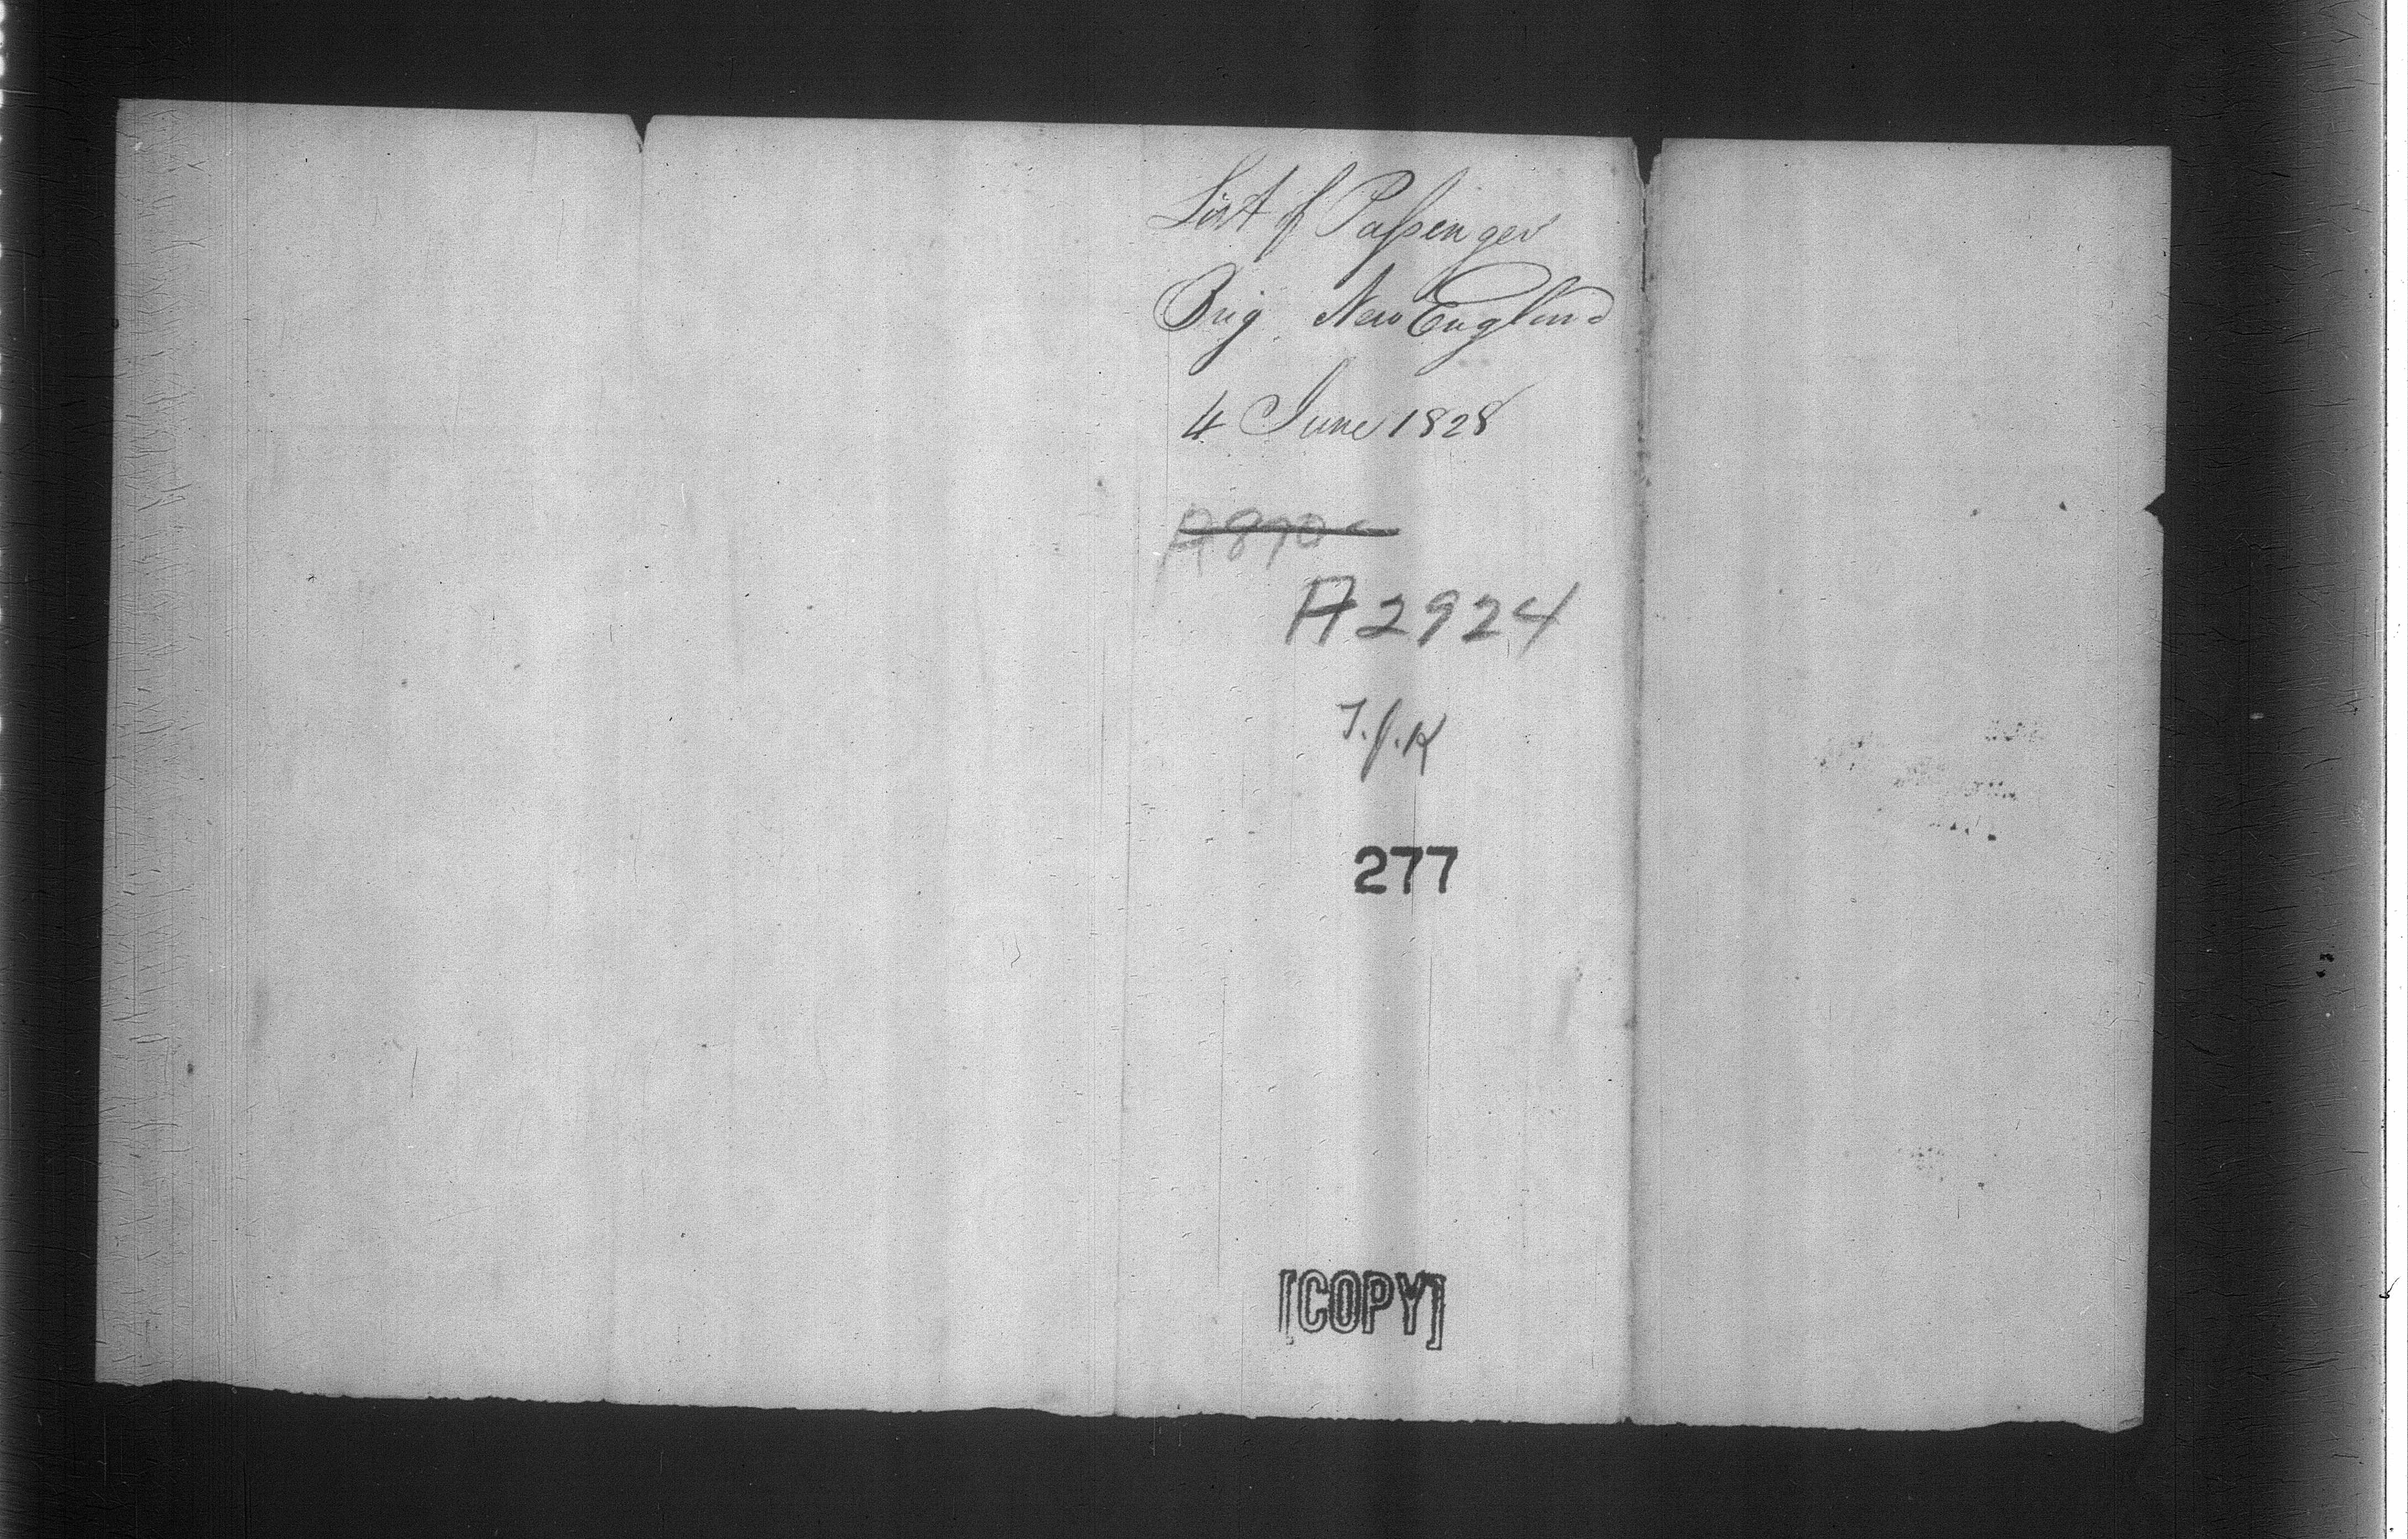 List of Passenger
Brig New England
4 June 1828
A2924
T.J.K
277
[COPY]